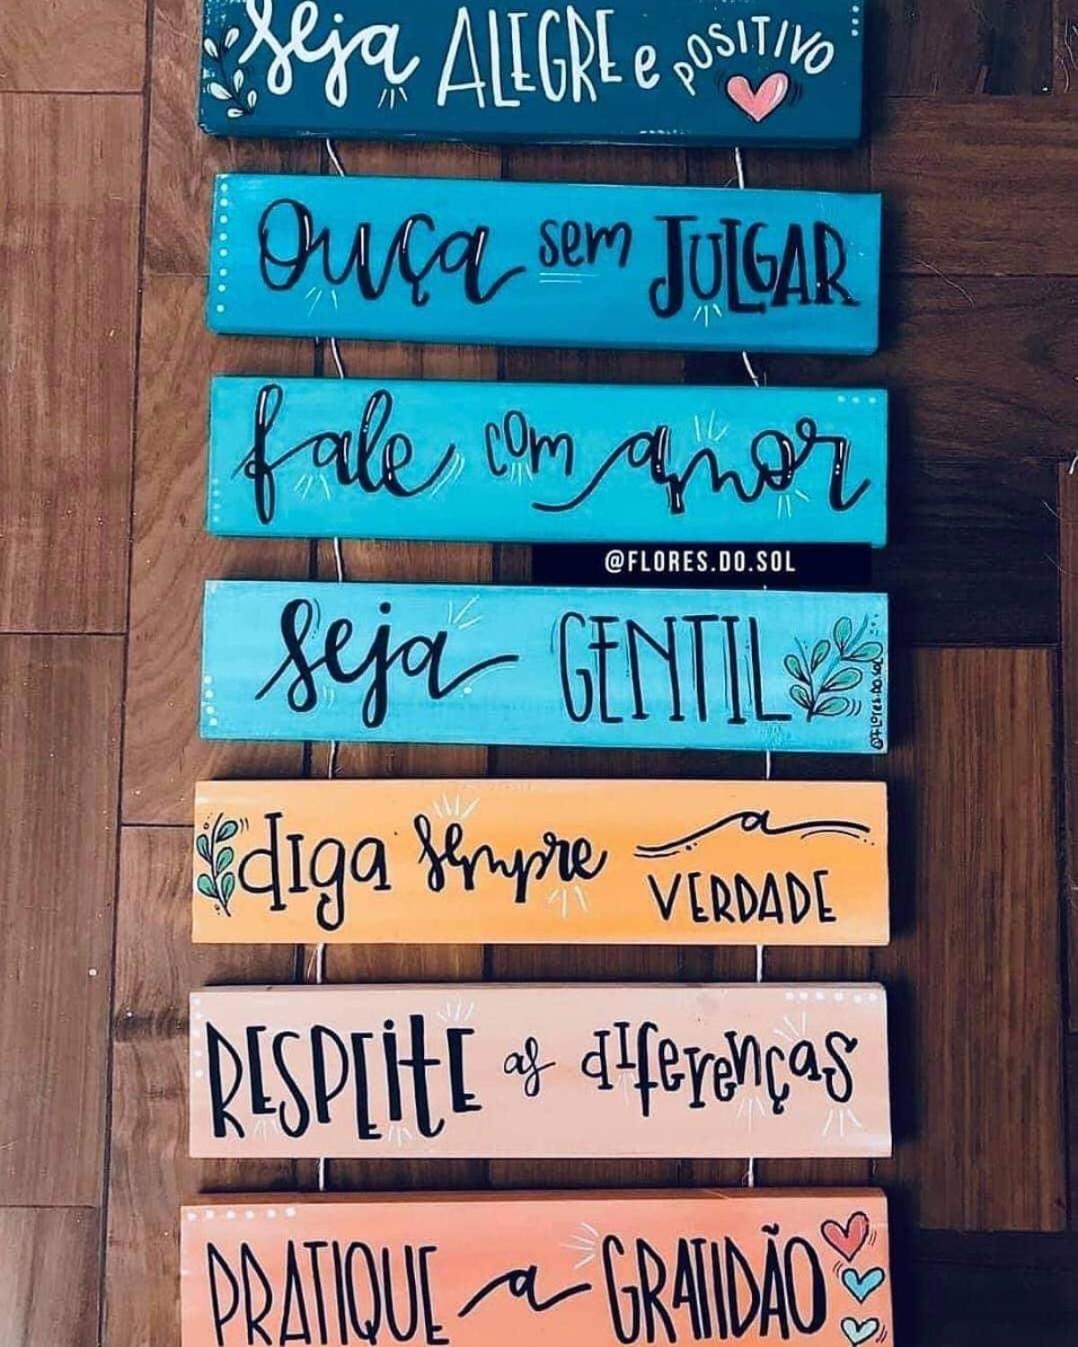 seja ALEGRE e POSITIVO
Ouça sem JULGAR
fale com amor
@FLORES.DO.SOL
seja GENTIL
@FLORES.DO.SOL
diga sempre a
VERDADE
RESPEITE as diferenças
PRATIQUE a GRATIDÃO